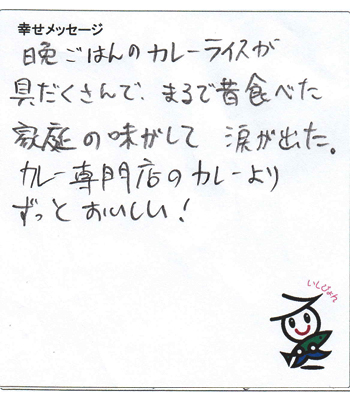 幸せメッセージ
晩ごはんのカレーライスが
具だくさんで、まるで昔食べた
家庭の味がして 涙が出た。
カレー専門店のカレーより
ずっとおいしい!
いしぴょん